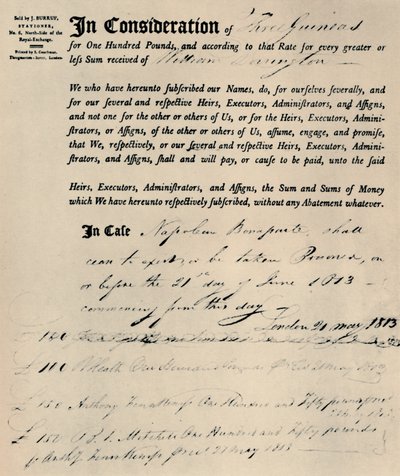 Sold by J. BURRUP,
STATIONER,
No. 6, North-Side of the
Royal-Exchange.
In Consideration of Three Guineas
for One Hundred Pounds, and according to that Rate for every greater or
leſs Sum received of William Dorrington
We who have hereunto ſubſcribed our Names, do, for ourſelves ſeverally, and
for our ſeveral and reſpective Heirs, Executors, Adminiſtrators, and Aſſigns,
and not one for the other or others of Us, or for the Heirs, Executors, Admini-
ſtrators, or Aſſigns, of the other or others of Us, aſſume, engage, and promiſe,
that We, reſpectively, or our ſeveral and reſpective Heirs, Executors, Admini-
ſtrators, and Aſſigns, ſhall and will pay, or cauſe to be paid, unto the ſaid
Heirs, Executors, Adminiſtrators, and Aſſigns, the Sum and Sums of Money
which We have hereunto reſpectively ſubſcribed, without any Abatement whatever.
In Caſe Napoleon Bonaparte shall
cease to exist, or be taken Prisoner, on
or before the 21st day of June 1813 –
commencing from this day –
London 21 May 1813
£ 100
£ 100 Heath One Hundred
£ 150 Anthony One Hundred and Fifty pounds
£ 150 Mitchell One Hundred and Fifty pounds
21 May 1813